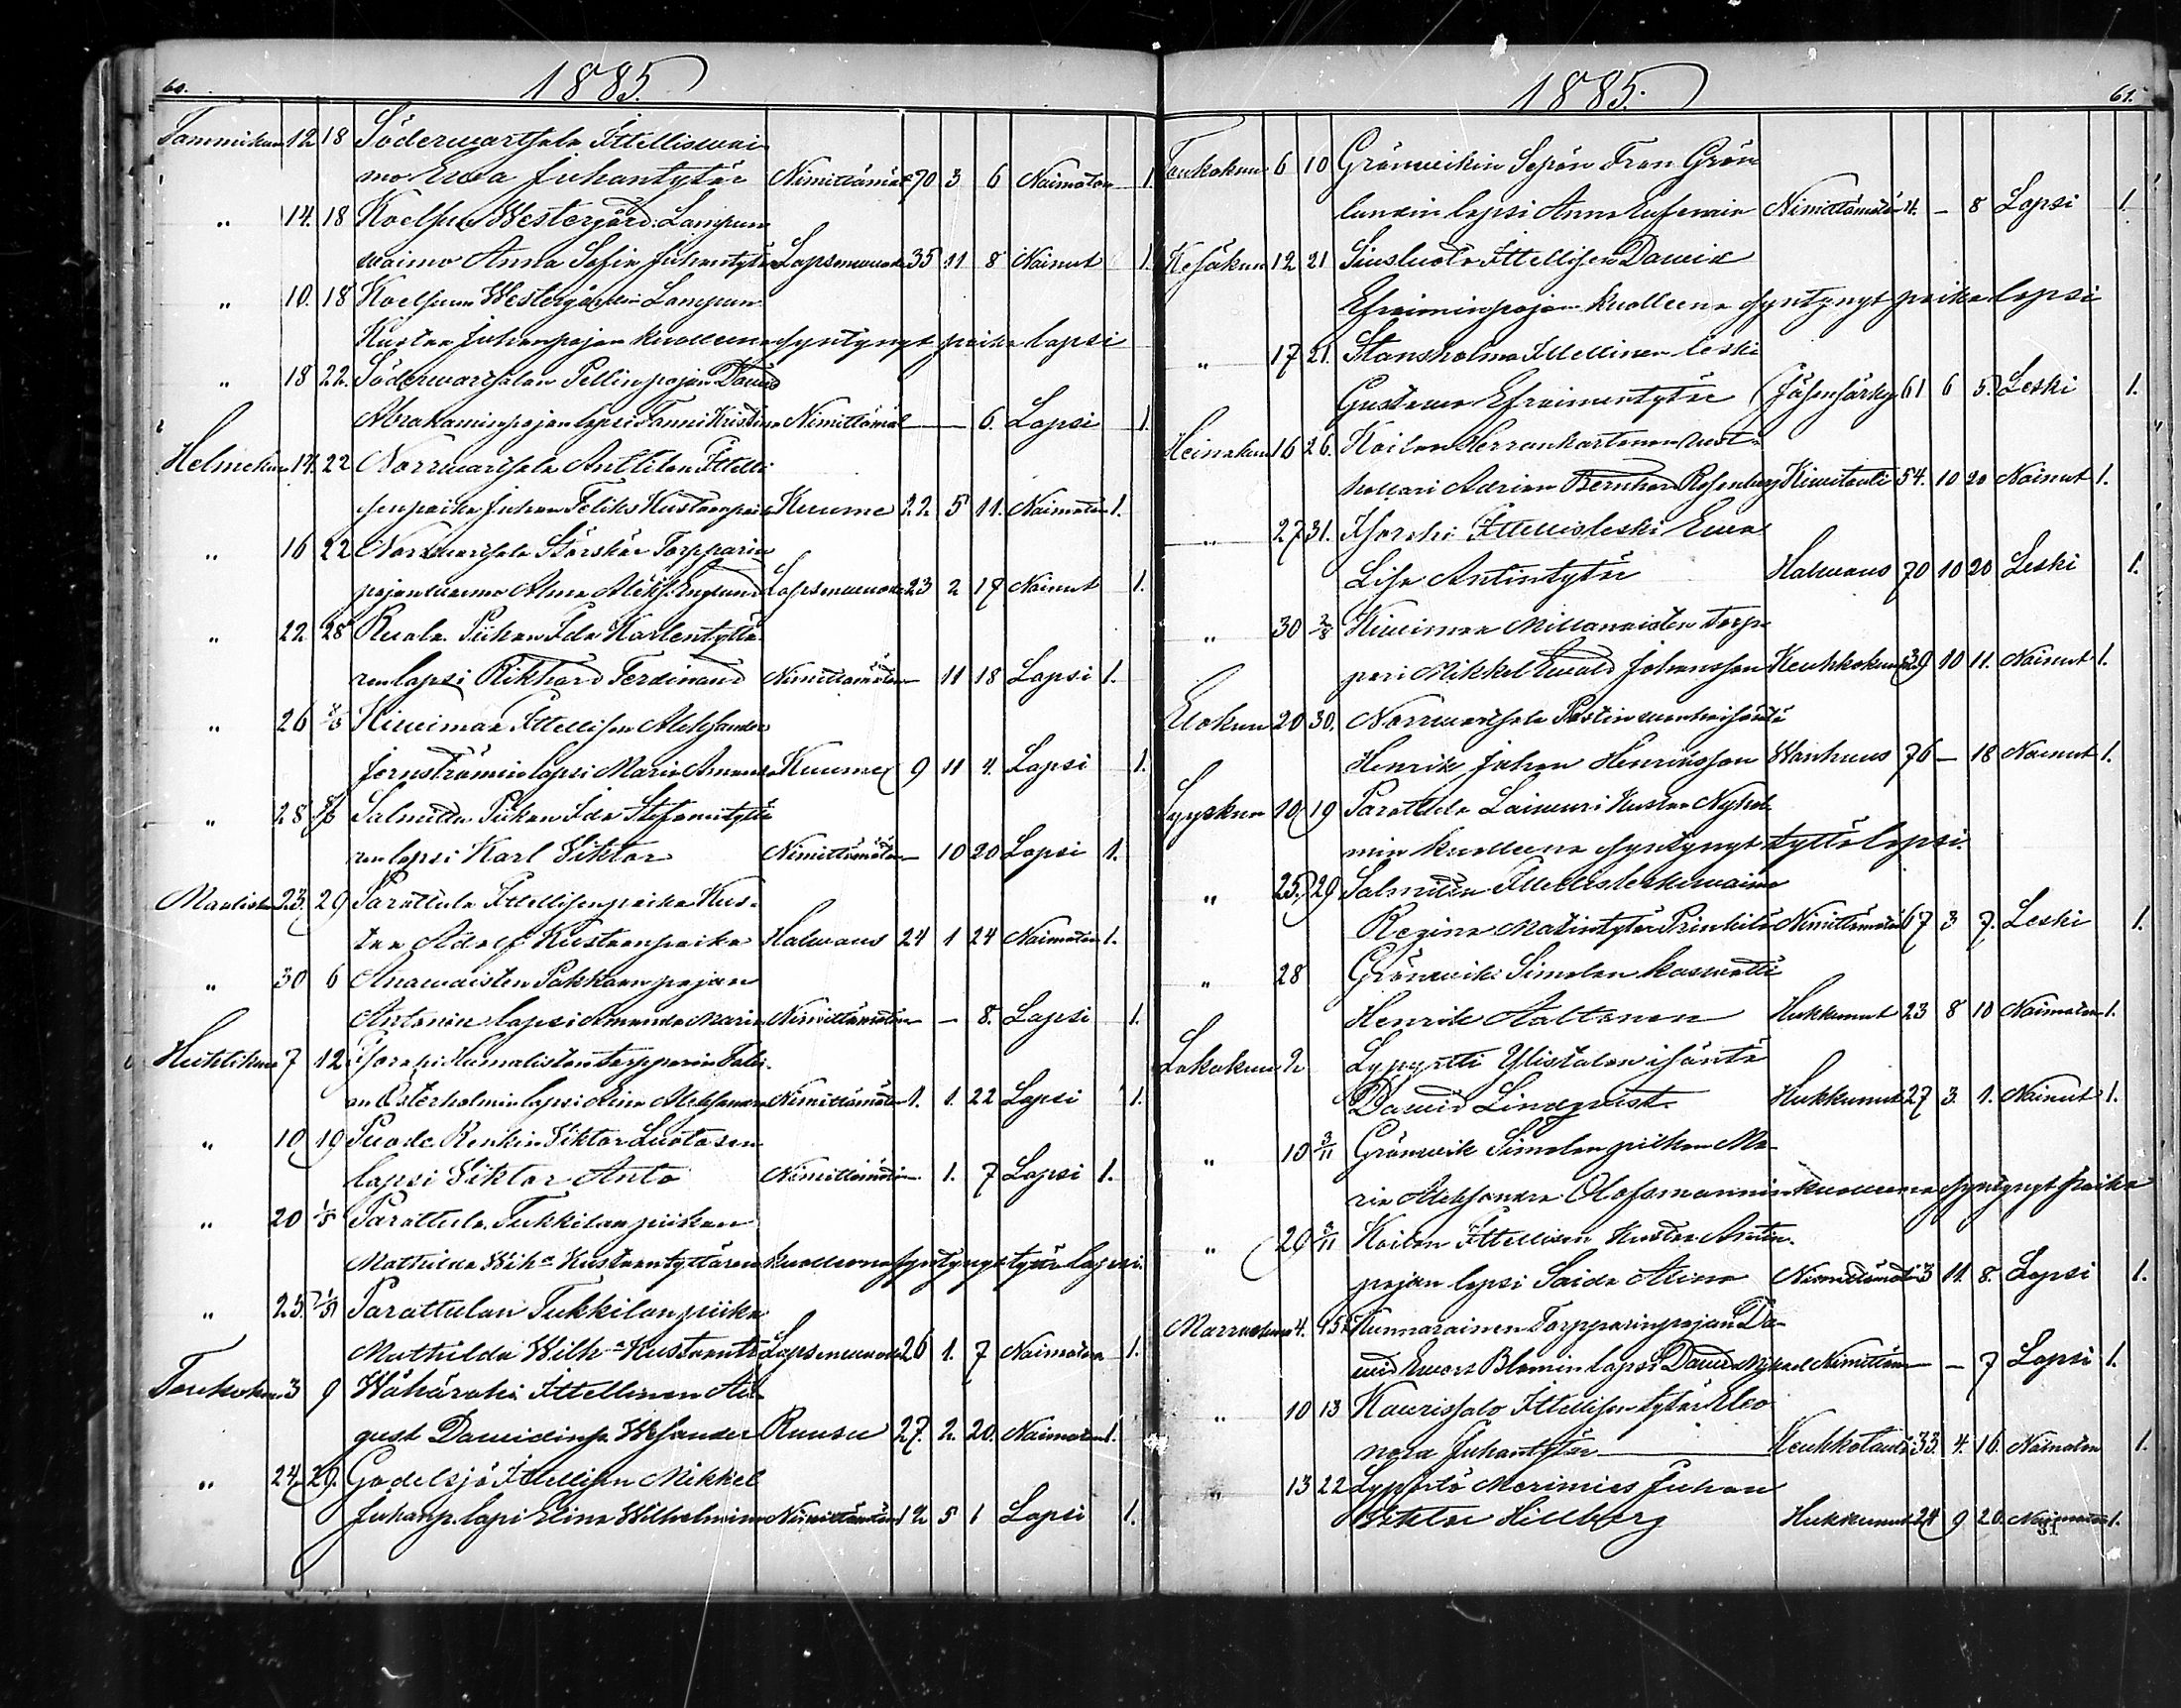 60.
1885.
Tammikuu 12 18 Söderwartsala Ittelliswai
mo Ewa Juhantytär Nimittämät 70 3 6 Naimaton 1.
" 14. 18 Westergård Lampun
waimo Anna Sofia Juhantytär Lapsenwuode 35 11 8 Nainut 1.
" 10. 18 Westergårdin Lampun
Kustaa Juhanpojan kuolleena syntynyt poika lapsi
" 18 22. Söderwartsalan Pellinpojan Dawid
Abrahaminpojan lapsi Fanni Kristina Nimittömät — — 6. Lapsi 1.
Helmekuu 14. 22 Norrwartsala Anttilan Ittelli
senpoika Juhan Feliks Kustaanpoika Kuume 22. 5 11. Naimaton 1.
" 16 22 Norrwartsala Störskär Torpparin
pojanwaimo Alma Englund Lapsenwuode 23 2 17 Nainut 1.
" 22. 28 Piikan Ida Karlentyttä
ren lapsi Rikhard Ferdinand Nimittämätön — 11 18 Lapsi 1.
" 26 8/3 Kiwimaa Ittellisen Aleksander
Jernströmin lapsi Maria Amanda Kuume 9 11 4. Lapsi 1.
" 28 8/3 Salmitta Piikan Ida Stefanityttä
ren lapsi Karl Wiktor Nimittämätön — 10 20 Lapsi 1.
Maalisku 23. 29 Parattula Ittellisenpoika Kus-
taa Adolf Kustaanpoika Halwaus 24 1 24 Naimaton 1.
" 30 6 Anawaisten Pakkaanpojan
Antonin lapsi Amanda Maria Nimittämätön — — 8. Lapsi 1.
Huhtikuu 7 12 Humaliston torpparin
Österholmin lapsi Aina Aleksandra Nimittämätön 1. 1. 22 Lapsi 1.
" 10 19 Renkin Wiktor Luotosen
lapsi Wiktor Anto Nimittämätön 1. 7 Lapsi 1.
" 20 1/5 Parattula Tukkilan piikan
Mathilda Wilha Kustaantyttären kuolleena syntynyt tyttö lapsi.
" 25. 1/5 Parattulan Tukkilan piika
Mathilda Wilha Kustaant: Lapsenwuode 26 1. 7 Naimaton 1.
Toukokuu 3 9 Ittellinen Au-
gust Dawidinp. Wesander Ruusu 27. 2. 20. Naimaton 1.
" 24 29. Godelsjö Ittellisen Mikkel
Juhanp. lapsi Elina Wilhelmina Nimittämätön 12 5 1 Lapsi 1.
61.
1885.
Toukokuu 6 10 Grönwikin Sepän Fran Grön
lundin lapsi Anna Eufemia Nimittämätön 4. — 8 Lapsi 1.
Kesäkuu 12 21 Ittellisen Dawid
Efraiminpojan kuolleena syntynyt poika lapsi
" 17 21. Stansholma Ittellinen leski
Gustawa Efraimintytär 61 6 5. Leski 1.
Heinäkuu 16 26. Koilan Herrankartanon
Adrian Bernhard Rosenberg Kiwitauti 54. 10 20 Nainut 1.
" 27 31. Ittellisleski Ewa
Lisa Antintytär Halwaus 70 10 20 Leski 1.
" 30 2/8 Kiwimaa torp
pari Mikkel Ewald Johansson Keuhkokuume 39 10 11. Nainut 1.
Elokuu 20 30. Norrwartsala Prostin wanhaisäntä
Henrik Johan Henriksson Wanhuus 76 — 18 Nainut 1.
Syyskuu 10 19 Parattula Laiwuri Kustaa Nyhol
min kuolleena syntynyt tyttö lapsi.
" 25. 29 Salmitan Ittellisleskiwaimo
Regina Matintytär Nimittämätön 67 3 7. Leski 1.
" 28 Grönwik Simolan kaswatti
Henrik Aaltonen Hukkunut 23 8 10 Naimaton 1.
Lokakuu 2 Lypyrtti Ylistalon isäntä
Dawid Lindqwist Hukkunut 27 3. 1. Nainut 1.
" 10 3/11 Grönwik Simolan piikan Ma-
ria Aleksandra Olofsmannin kuolleena syntynyt poika
" 20 3/11 Koilan Ittellisen Kustaa Antin-
pojan lapsi Saida Alina Nimittämätön 3 11. 8. Lapsi 1.
Marraskuu 4. 15 Kunnaraisen Torpparinpojan Da-
wid Ewert Blomin lapsi Dawid Mikael Nimittäm — — 7 Lapsi 1.
" 10 13 Kaurissalo Ittellisen tytär Eleo
nora Juhantytär Keuhkotauti 33. 4. 16. Naimaton 1.
" 13 22 Merimies Juhan
Wiktor Hillberg Hukkunut 24 9 20. Naimaton 1.
31